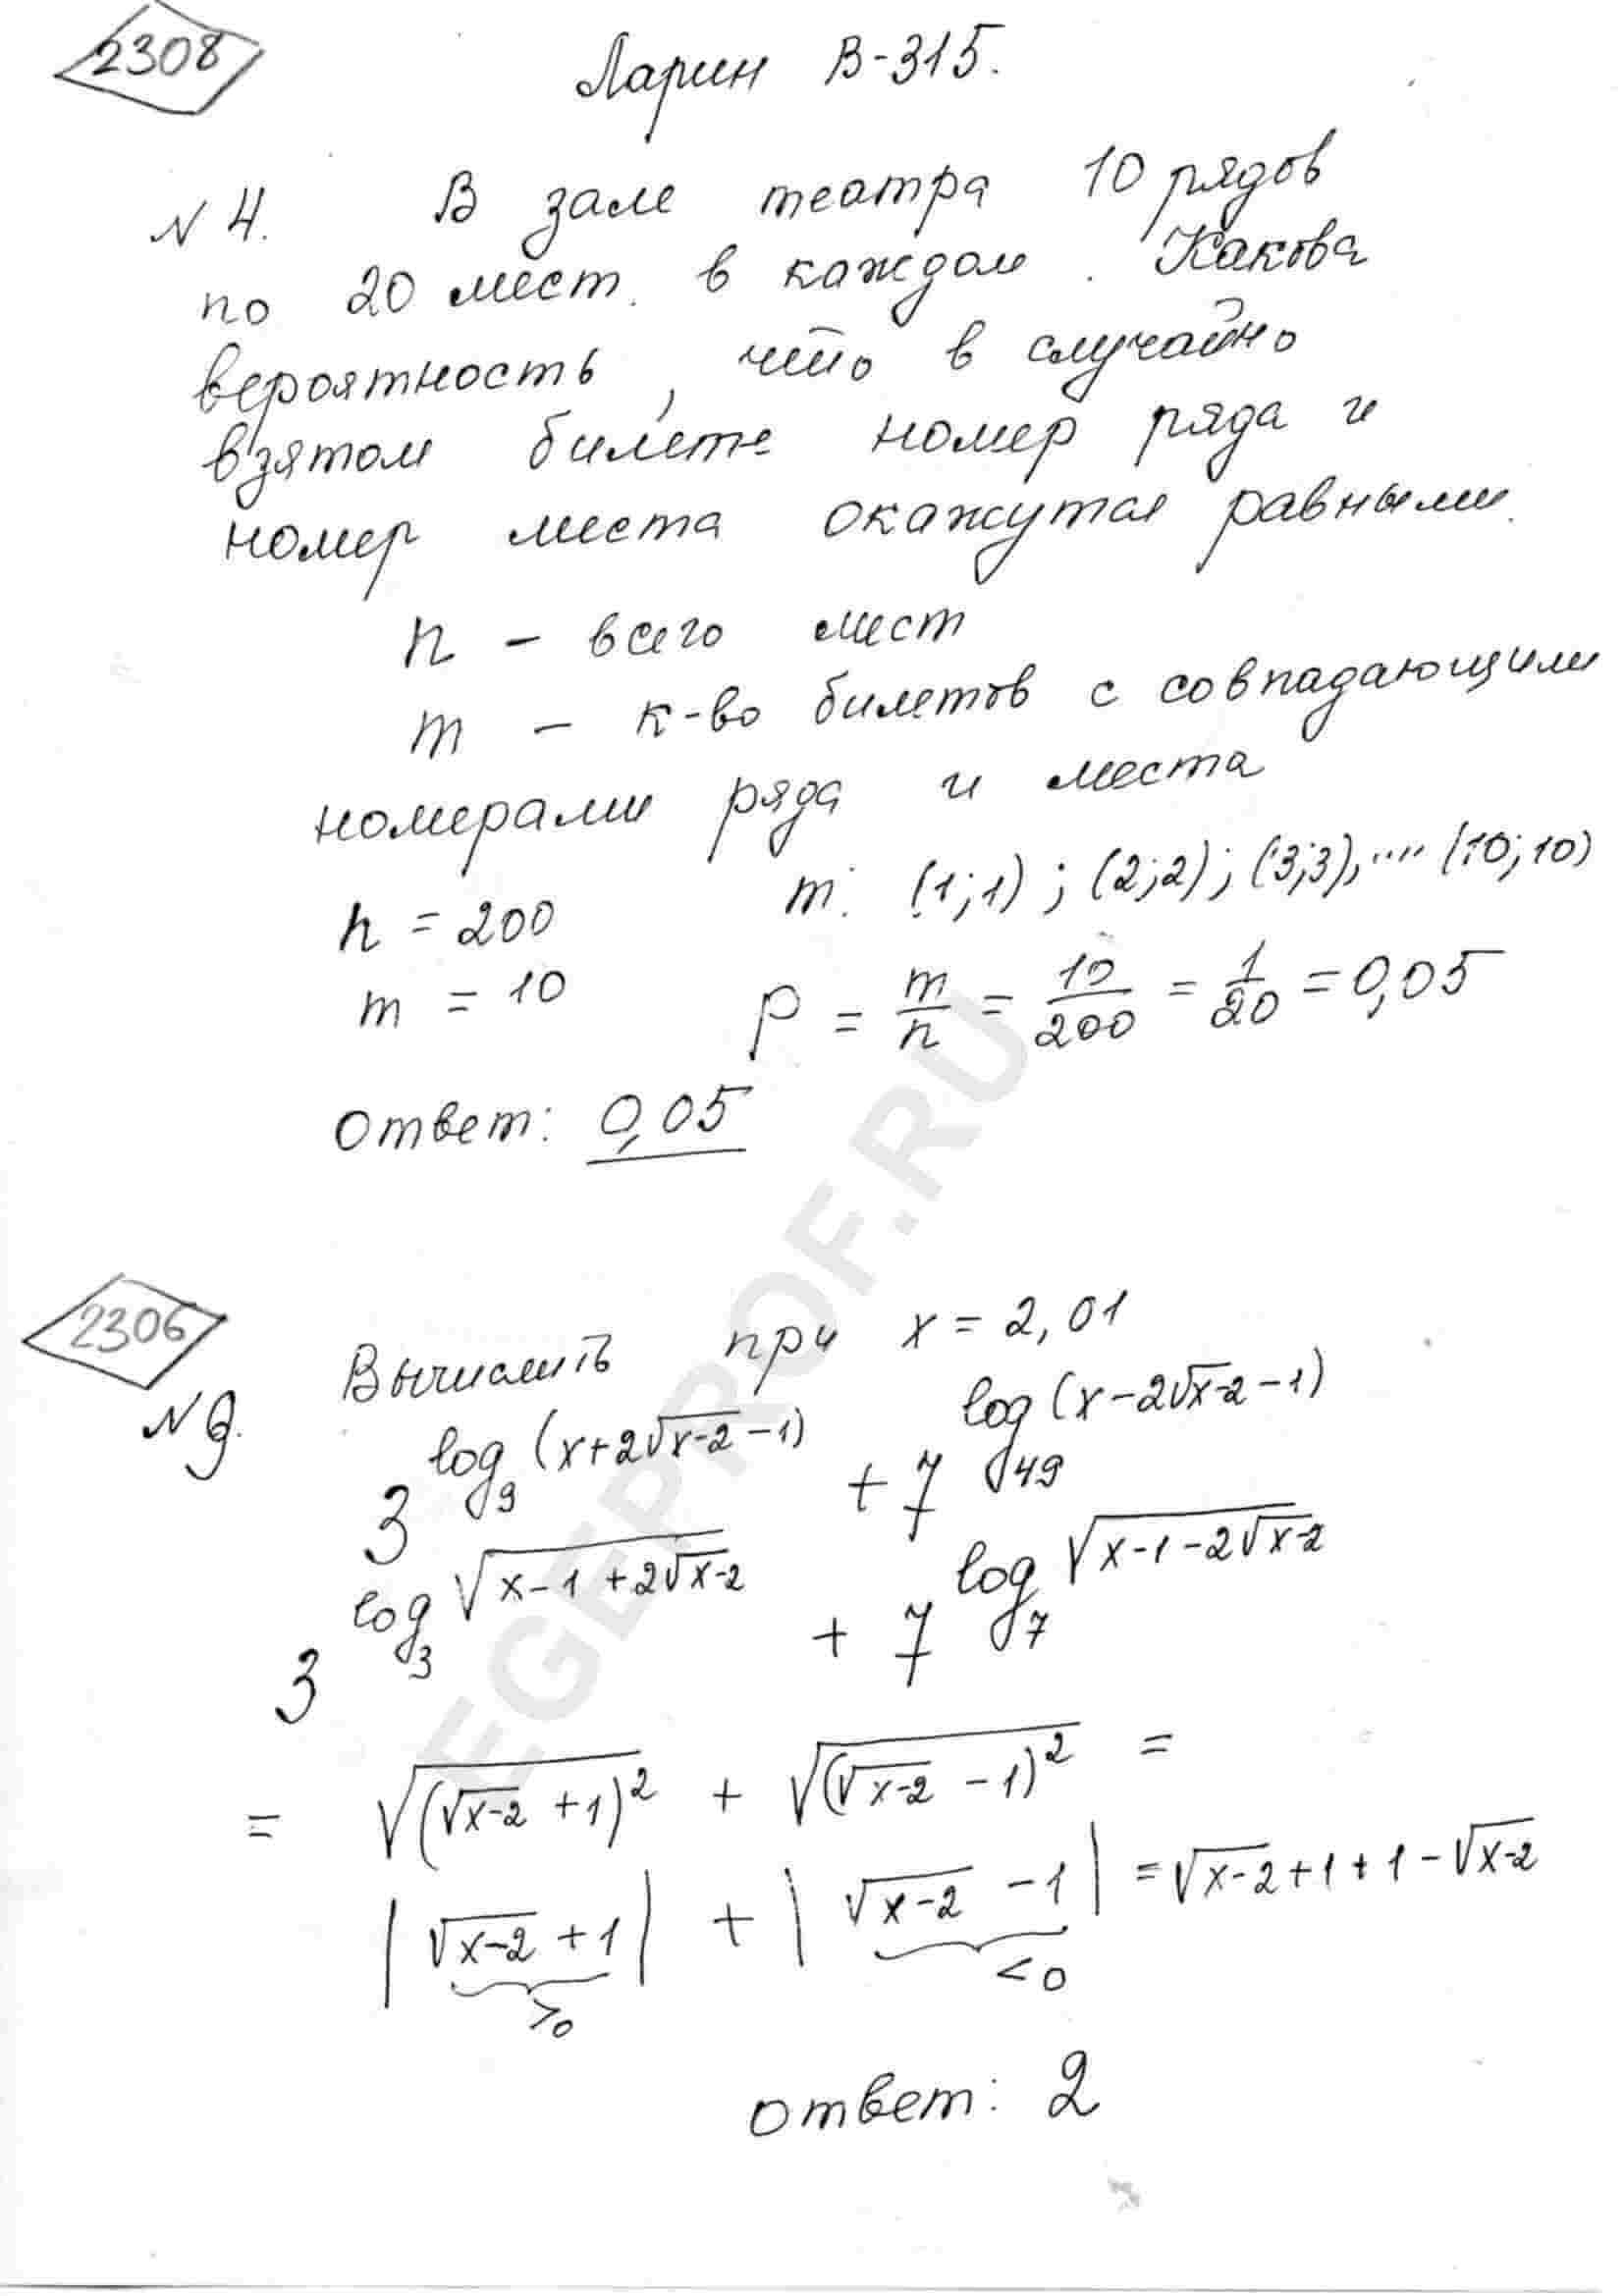 2308
Ларин В-315.
№ 4. В зале театра 10 рядов
по 20 мест в каждом. Какова
вероятность, что в случайно
взятом билете номер ряда и
номер места окажутся равными.
n - всего мест
m - к-во билетов с совпадающими
номерами ряда и места
n = 200 m: (1;1); (2;2); (3;3), .... (10;10)
m = 10 P = m/n = 10/200 = 1/20 = 0,05
Ответ: 0,05
2306
№ 9. Вычислить при x = 2,01
3^{log_9 (x+2√(x-2) -1)} + 7^{log_49 (x-2√(x-2) -1)}
3^{log_3 √(x-1+2√(x-2))} + 7^{log_7 √(x-1-2√(x-2))}
= √((√(x-2) +1)^2) + √((√(x-2) -1)^2) =
|√(x-2) +1| + |√(x-2) -1| = √(x-2) +1+1-√(x-2)
>0 <0
ответ: 2
EGEPROF.RU